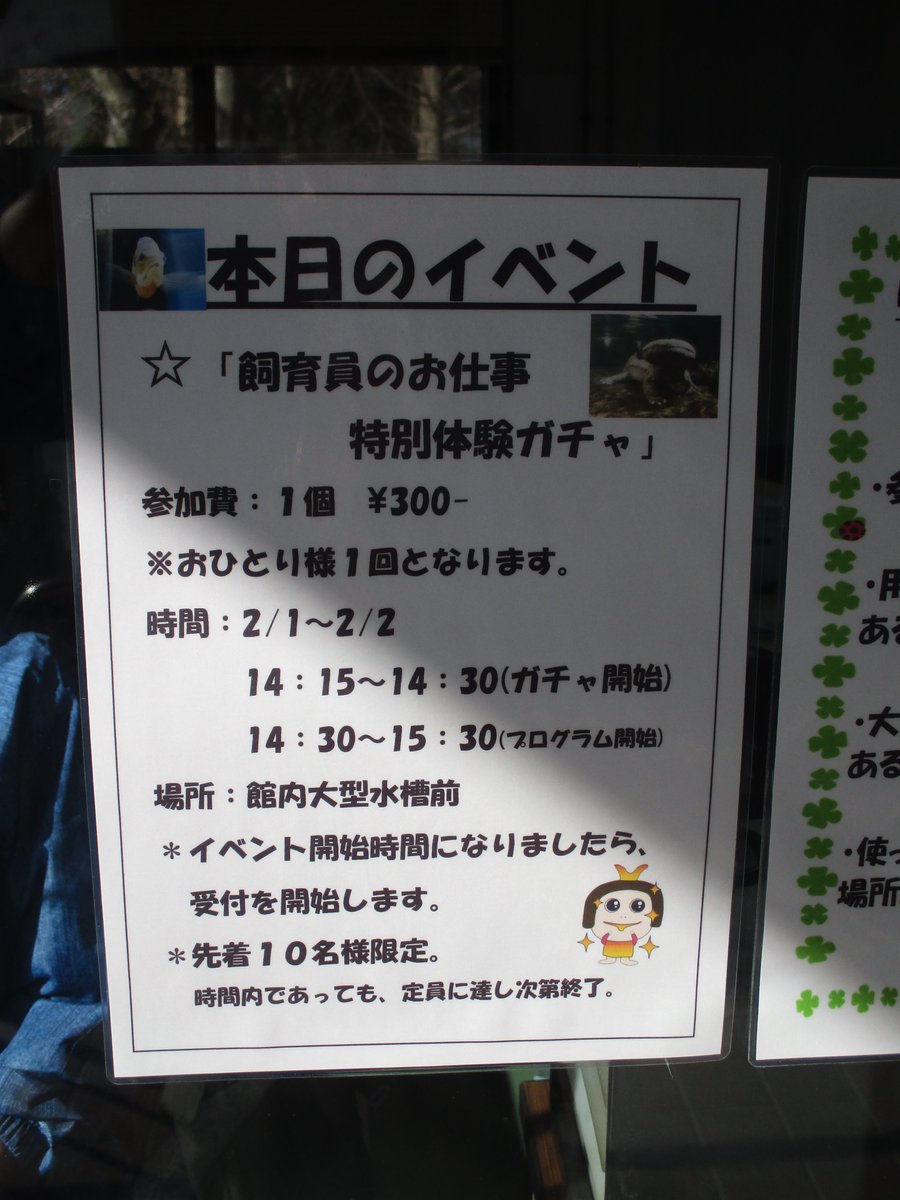 本日のイベント
☆「飼育員のお仕事
特別体験ガチャ」
参加費：1個　¥300-
※おひとり様1回となります。
時間：2/1～2/2
14：15～14：30(ガチャ開始)
14：30～15：30(プログラム開始)
場所：館内大型水槽前
＊イベント開始時間になりましたら、
受付を開始します。
＊先着１０名様限定。
時間内であっても、定員に達し次第終了。
ある
・大
ある
・使っ
場所